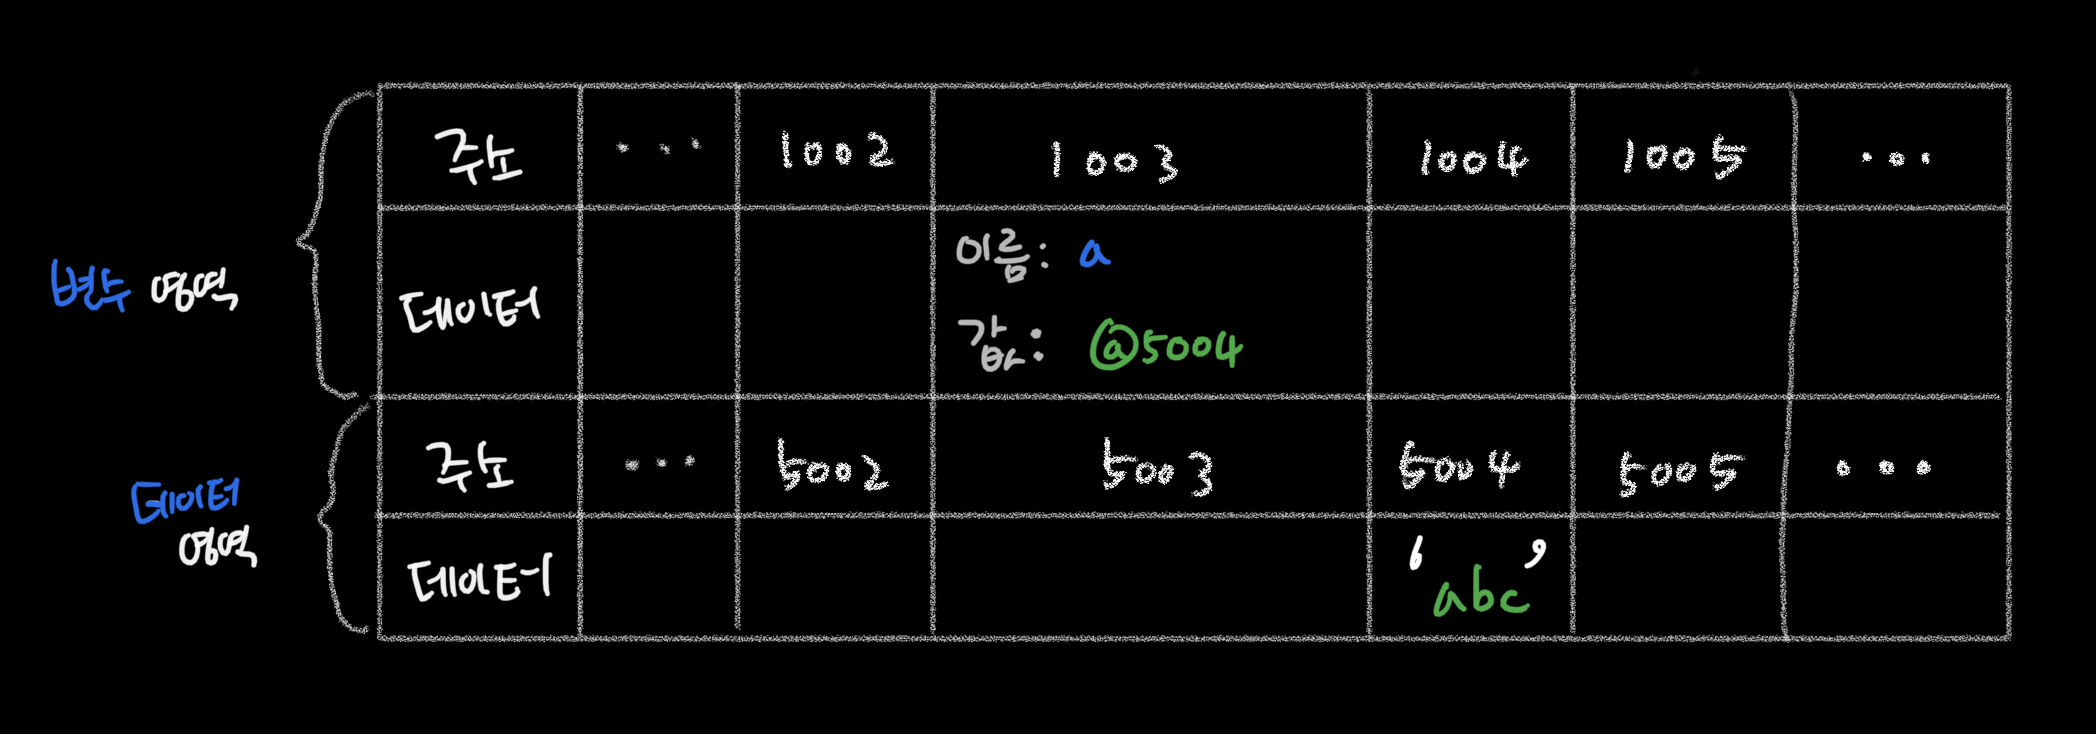 변수 영역
주소 ... 1002 1003 1004 1005 ...
데이터
이름: a
값: @5004
데이터
영역
주소 ... 5002 5003 5004 5005 ...
데이터 'abc'